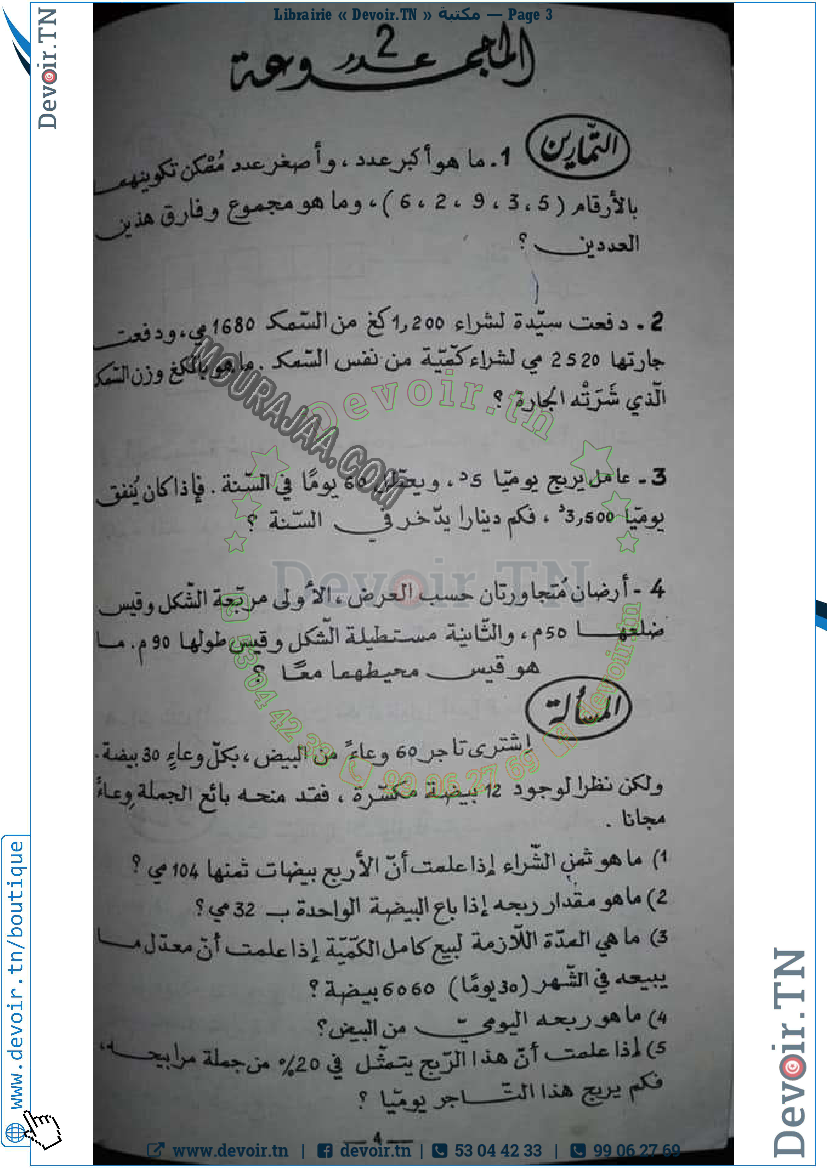 Librairie « Devoir.TN » مكتبة — Page 3
Devoir.TN
المجموعة
عدد 2
التمارين
1. ما هو أكبر عدد ، وأصغر عدد مُمْكن تكوينهما
بالأرقام ( 5 ، 3 ، 9 ، 2 ، 6 ) ، وما هو مجموع وفارق هذين
العددين ؟
2 - دفعت سيّدة لشراء 1,200 كغ من السّمك 1680 مي ، ودفعت
جارتها 2520 مي لشراء كمّية من نفس السّمك . ما هو بالكغ وزن السّمك
الّذي شَرَتْه الجارة ؟
3 - عامل يربح يوميّا 5د ، ويعطّل 60 يومًا في السّنة . فإذا كان يُنفق
يوميّا 3,500د ، فكم دينارا يدّخر في السّنة ؟
4 - أرضان مُتجاورتان حسب العرض ، الأولى مربّعة الشّكل وقيس
ضلعها 50 م ، والثّانية مستطيلة الشّكل وقيس طولها 90 م . ما
هو قيس محيطهما معًا ؟
المسألة
إشترى تاجر 60 وعاءً من البيض ، بكلّ وعاءٍ 30 بيضة .
ولكن نظرا لوجود 12 بيضة مكسّرة ، فقد منحه بائع الجملة وعاءً
مجانا .
1) ما هو ثمن الشّراء إذا علمت أنّ الأربع بيضات ثمنها 104 مي ؟
2) ما هو مقدار ربحه إذا باع البيضة الواحدة بـ 32 مي ؟
3) ما هي المدّة اللّازمة لبيع كامل الكمّية إذا علمت أنّ معدّل ما
يبيعه في الشّهر (30 يومًا) 6060 بيضة ؟
4) ما هو ربحه اليوميّ من البيض ؟
5) إذا علمت أنّ هذا الرّبح يتمثّل في 20% من جملة مرابيحه ،
فكم يربح هذا التّاجر يوميّا ؟
— 4 —
MOURAJAA.COM
Devoir.tn
Devoir.TN
53 04 42 33
99 06 27 69
devoir.tn
www.devoir.tn/boutique
Devoir.TN
www.devoir.tn | devoir.tn | 53 04 42 33 | 99 06 27 69